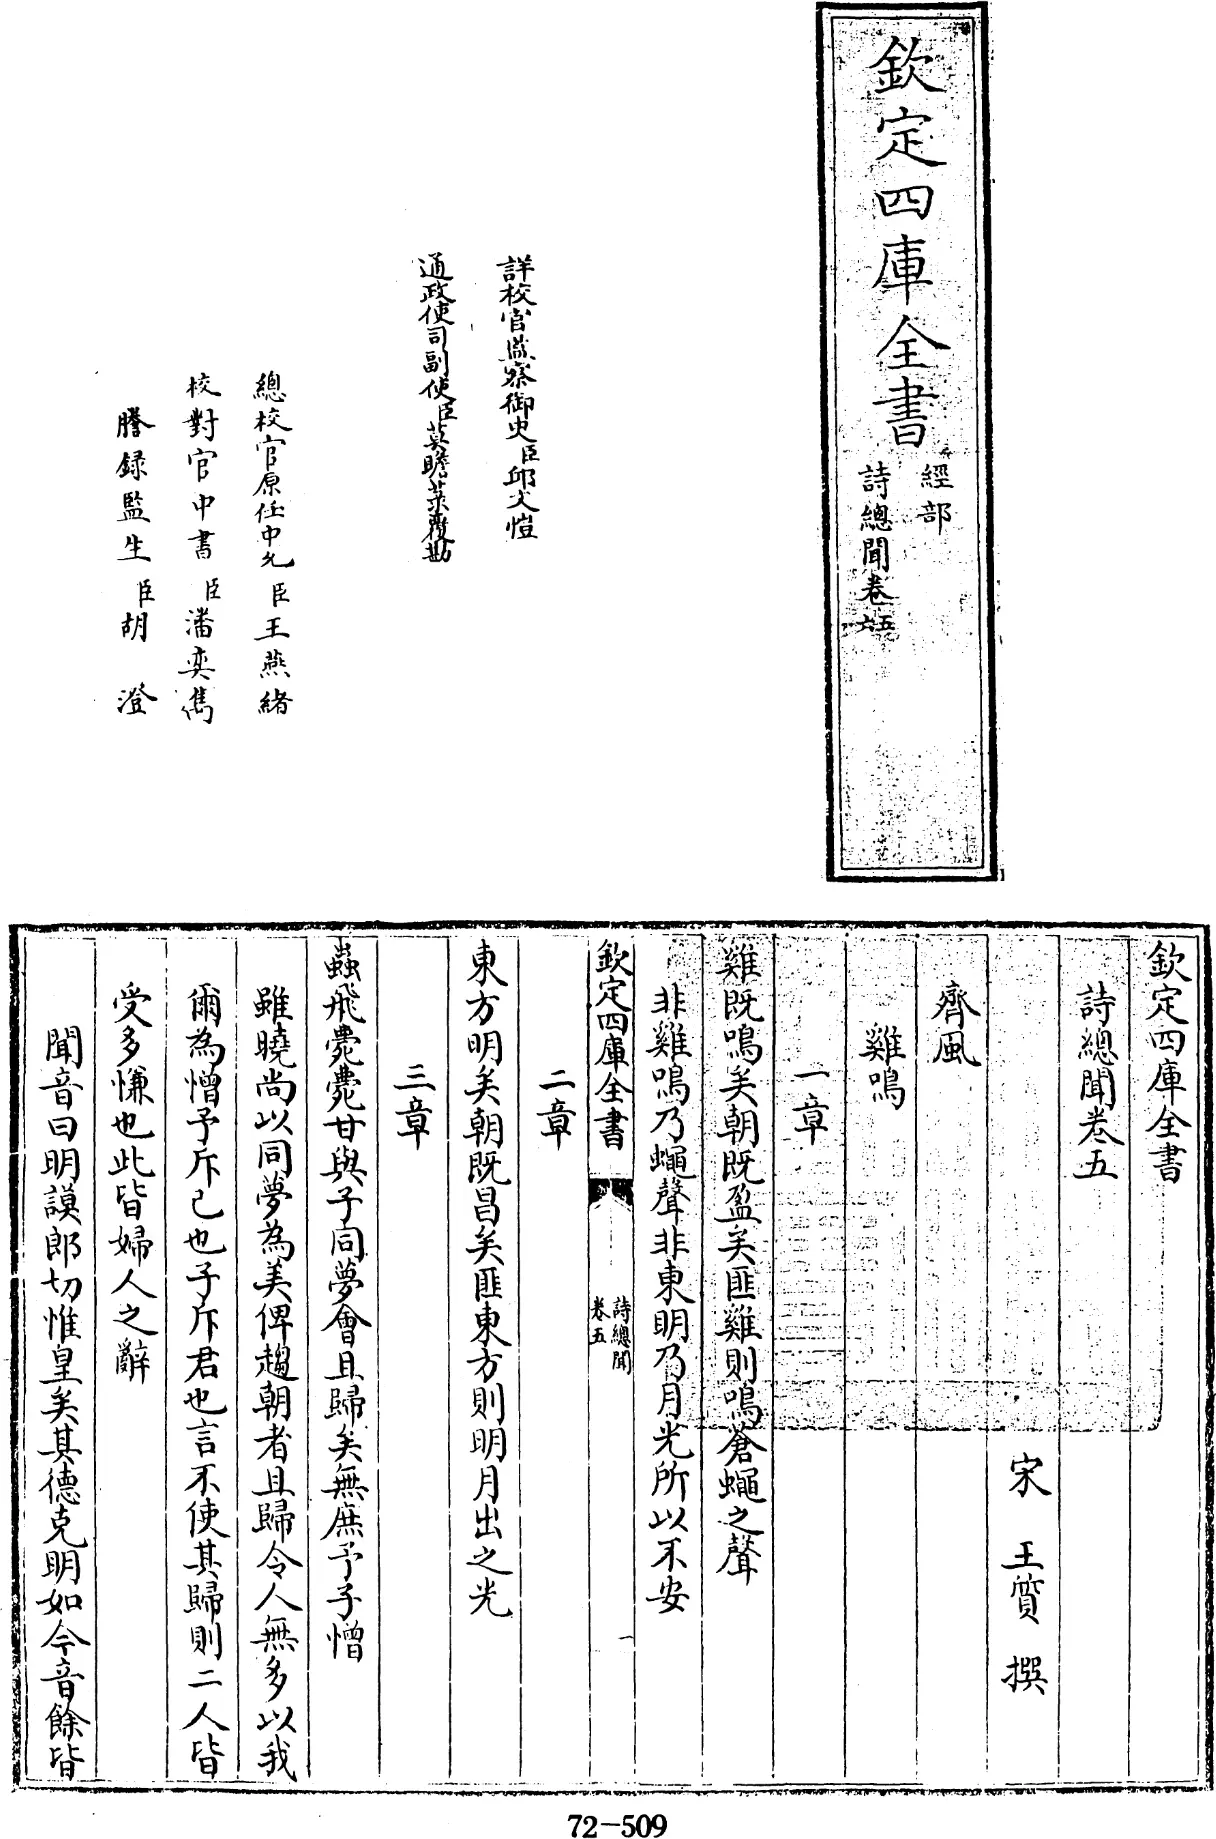 欽定四庫全書
經部
詩總聞卷五六
詳校官監察御史臣邱文愷
通政使司副使臣莫瞻菉覆勘
總校官原任中允臣王燕緒
校對官中書臣潘奕雋
謄録監生臣胡 澄
欽定四庫全書
詩總聞卷五
宋 王質 撰
齊風
雞鳴
一章
雞既鳴矣朝既盈矣匪雞則鳴蒼蠅之聲
非雞鳴乃蠅聲非東明乃月光所以不安
欽定四庫全書
詩總聞
卷五
一
二章
東方明矣朝既昌矣匪東方則明月出之光
三章
蟲飛薨薨甘與子同夢會且歸矣無庶予子憎
雖曉尚以同夢為美俾趨朝者且歸令人無多以我
爾為憎予斥己也子斥君也言不使其歸則二人皆
受多慊也此皆婦人之辭
聞音曰明謨郎切惟皇矣其德克明如今音餘皆
72-509